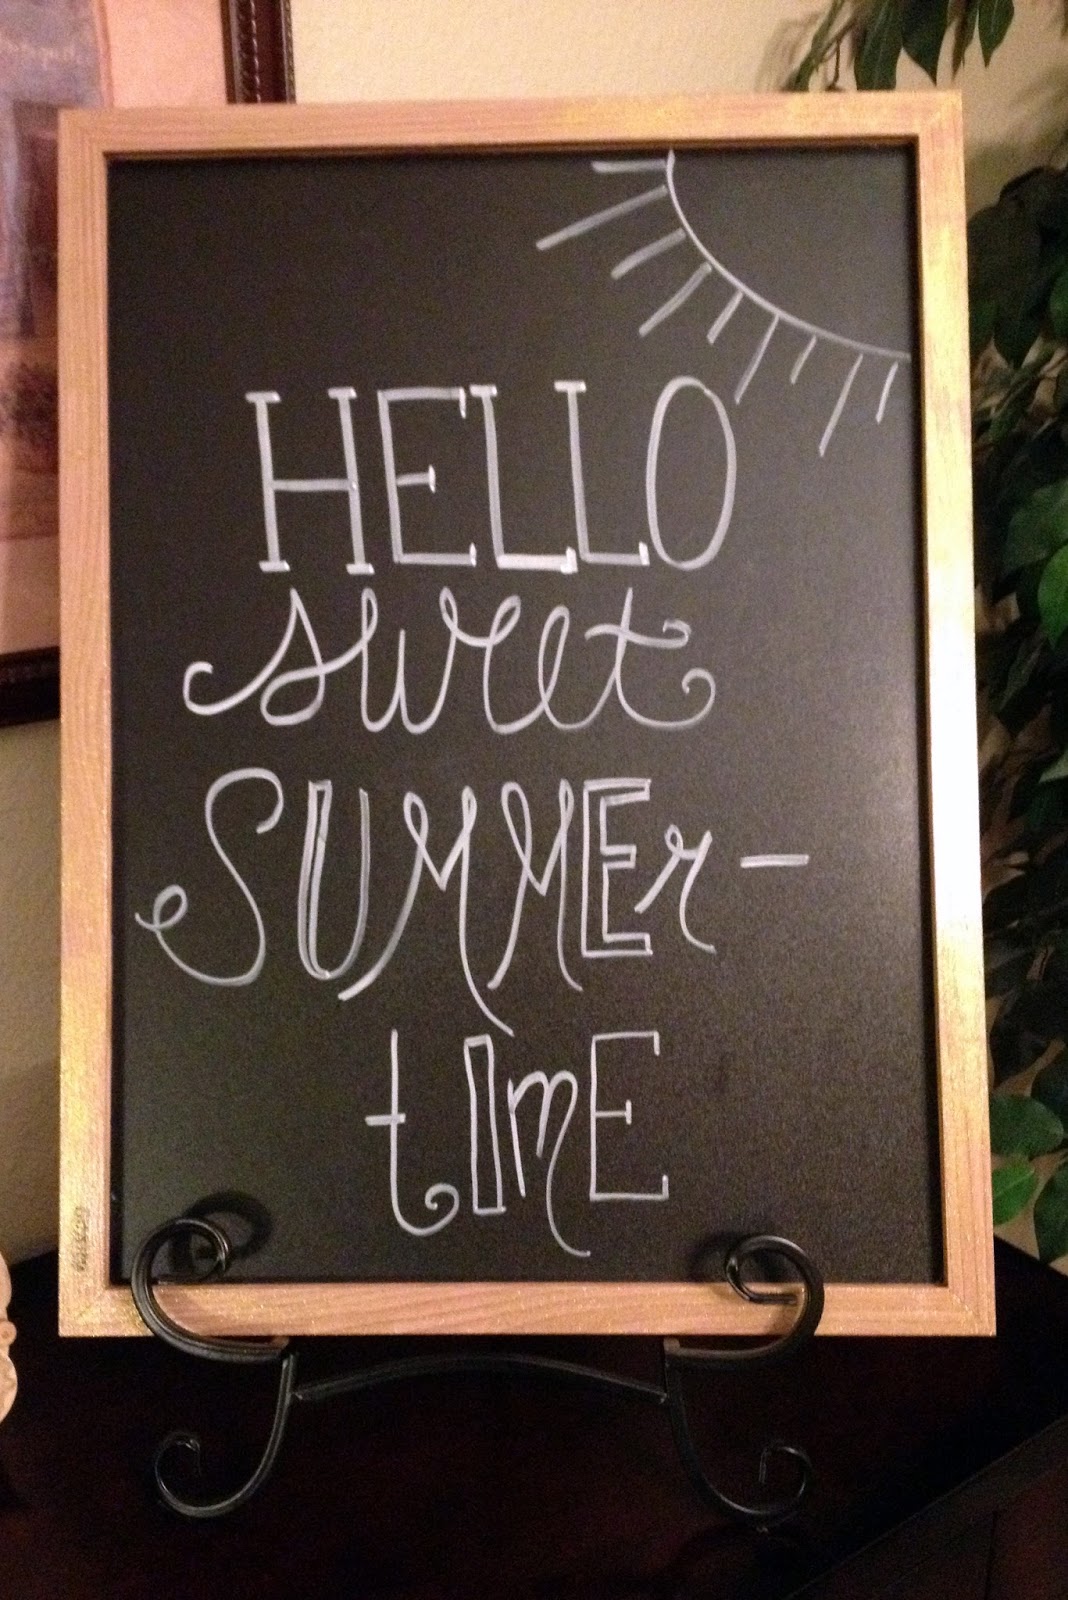 HELLO
sweet
SUMMEr-
tIME